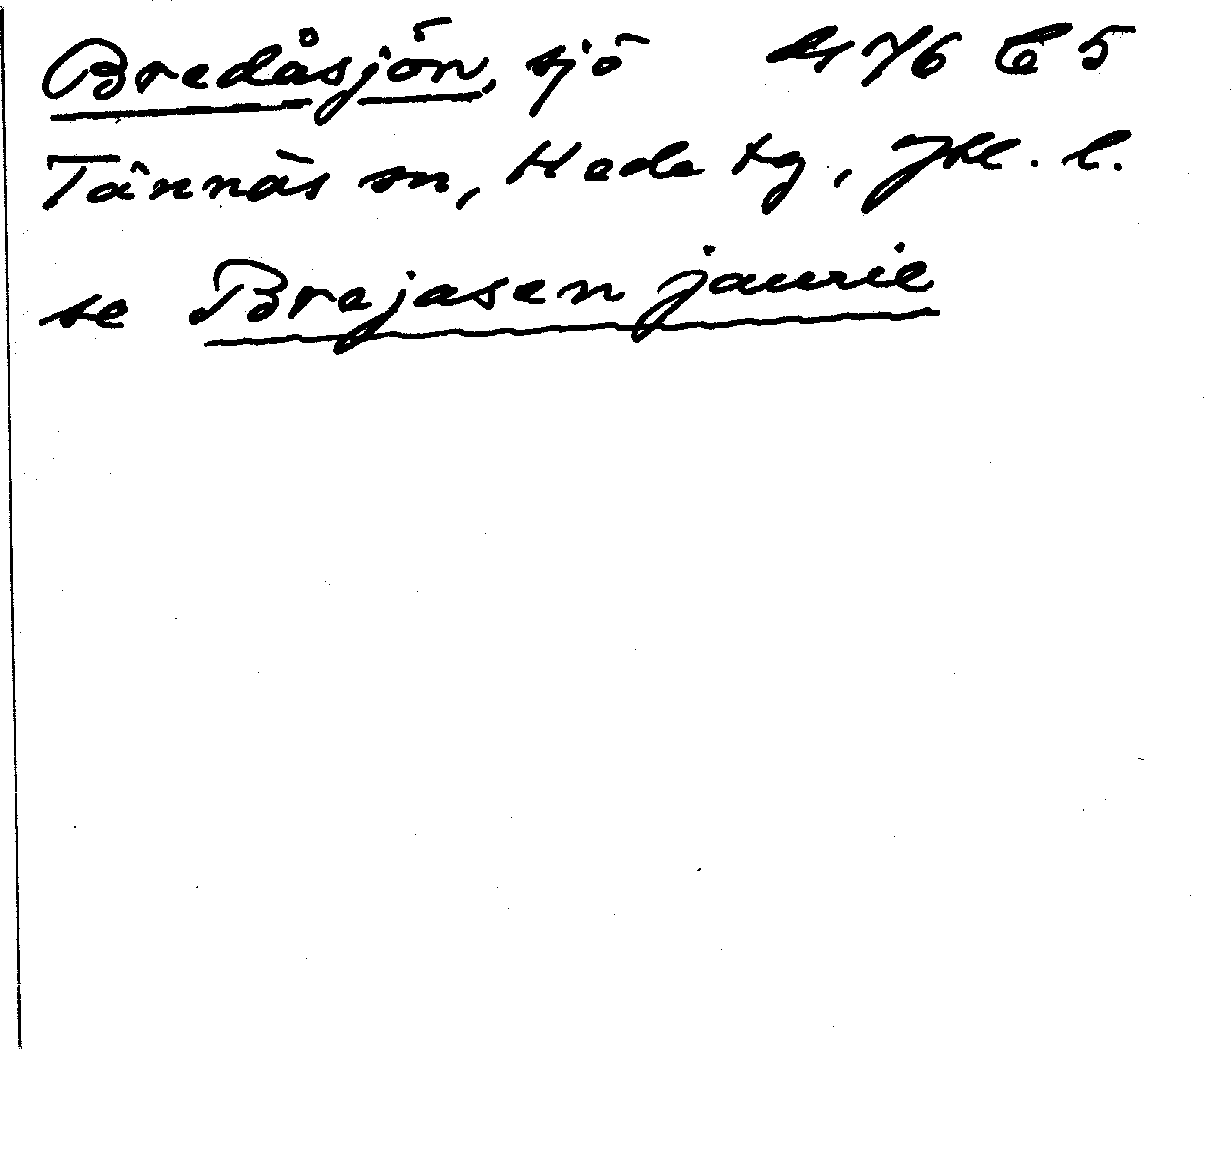 Bredåsjön, sjö 476 C 5
Tännäs sn, Hede tg, Jtl. l.
se Brejasen jaurie